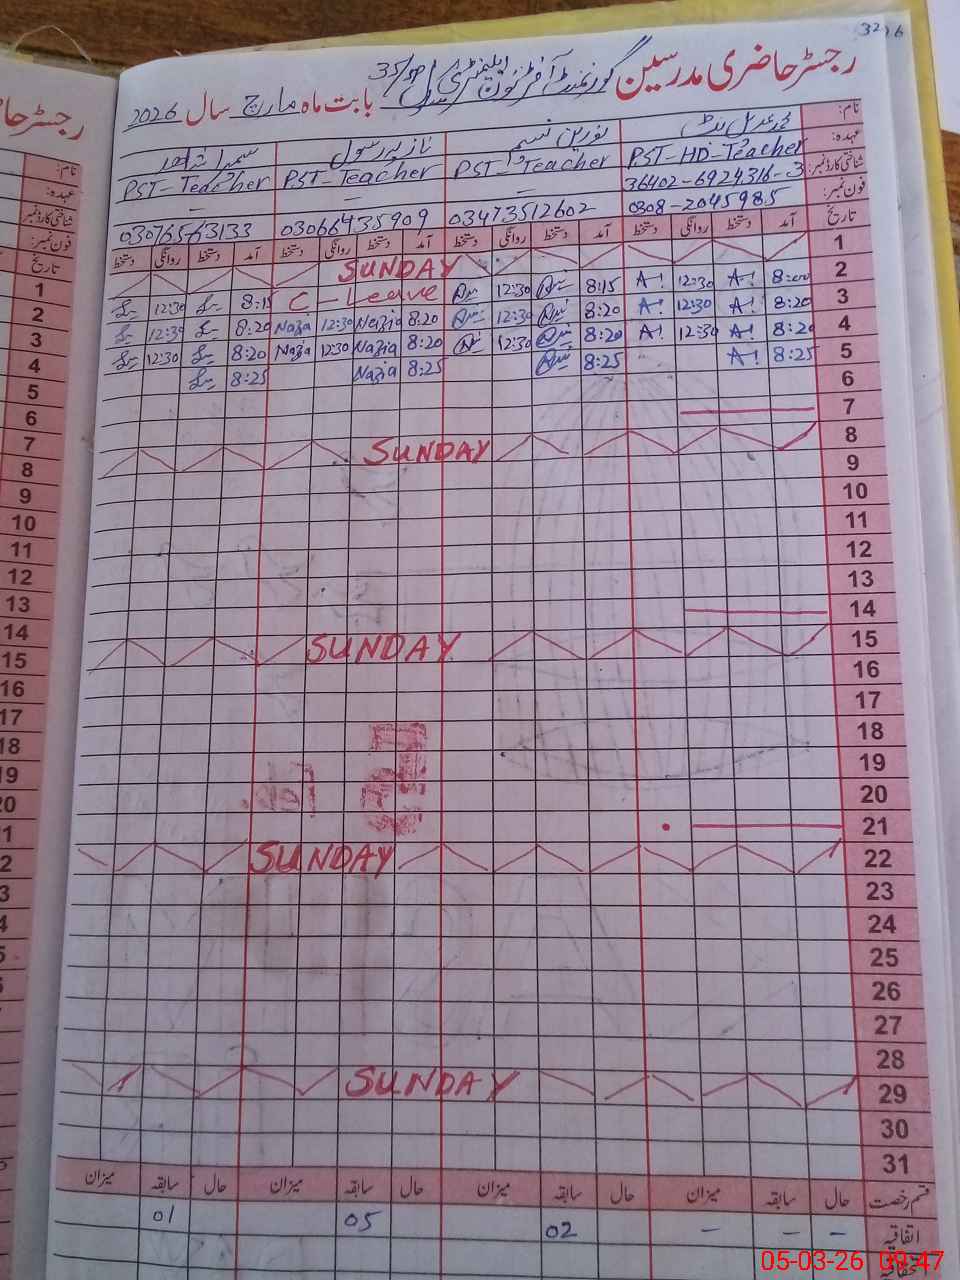 3216
رجسٹر حاضری مدرسین گورنمنٹ آفٹرنون ایلیمنٹری سکول 35/SP بابت ماہ مارچ سال 2026
نام: نورین نسیم نازیہ رسول سمیرا
عہدہ: PST-HD-Teacher PST-Teacher PST-Teacher PST-Teacher
شناختی کارڈ نمبر: 36402-6924316-3 - - -
فون نمبر: 0308-2045985 03473512602 03066935909 03076563133
تاریخ آمد دستخط روانگی دستخط آمد دستخط روانگی دستخط آمد دستخط روانگی دستخط آمد دستخط روانگی دستخط
1 SUNDAY
2 8:00 A! 12:30 A! 8:15 12:30 C-Leave 8:15 12:30
3 8:20 A! 12:30 A! 8:20 12:30 8:20 Nazia 12:30 Nazia 8:20 12:30
4 8:20 A! 12:30 A! 8:20 12:30 8:20 Nazia 12:30 Nazia 8:20 12:30
5 8:25 A! 8:25 8:25 Nazia 8:25
6
7
8 SUNDAY
9
10
11
12
13
14
15 SUNDAY
16
17
18
19
20
21
22 SUNDAY
23
24
25
26
27
28
29 SUNDAY
30
31
قسم رخصت حال سابقہ میزان حال سابقہ میزان حال سابقہ میزان حال سابقہ میزان
اتفاقیہ - - - 02 05 01
رجسٹر حا
نام:
عہدہ:
شناختی کارڈ نمبر
فون نمبر:
تاریخ
1
2
3
4
5
6
7
8
9
10
11
12
13
14
15
16
17
18
19
20
05-03-26 09:47